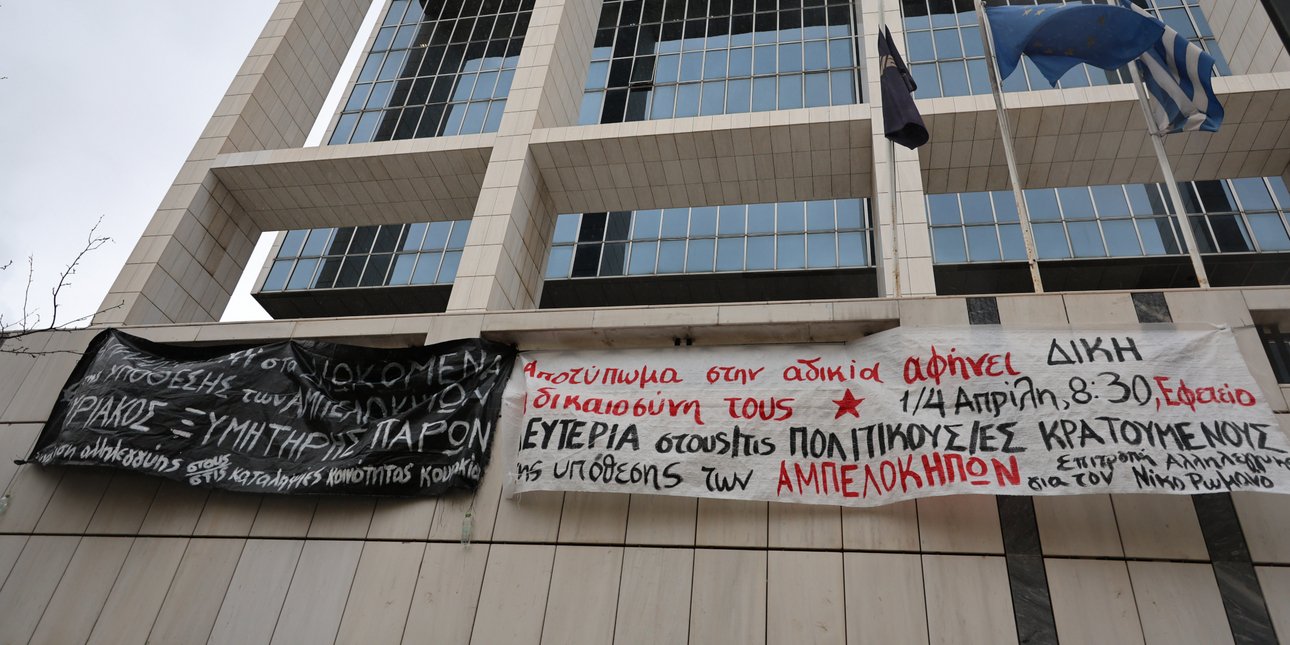 ΔΙΩΚΟΜΕΝΑ
ΥΠΟΘΕΣΗΣ των ΑΜΠΕΛΟΚΗΠΩΝ
ΥΡΙΑΚΟΣ ΞΥΜΗΤΗΡΗΣ ΠΑΡΩΝ
αλληλεγγύης στους/στις κατάληψης κοινότητας
Αποτύπωμα στην αδικία αφήνει
δικαιοσύνη τους ★
ΔΙΚΗ
1/4 Απρίλη, 8:30, Εφετείο
ΕΥΤΕΡΙΑ στους/τις ΠΟΛΙΤΙΚΟΥΣ/ΕΣ ΚΡΑΤΟΥΜΕΝΟΥΣ
της υπόθεσης των ΑΜΠΕΛΟΚΗΠΩΝ
Επιτροπή Αλληλεγγύ
για τον Νίκο Ρωμανό